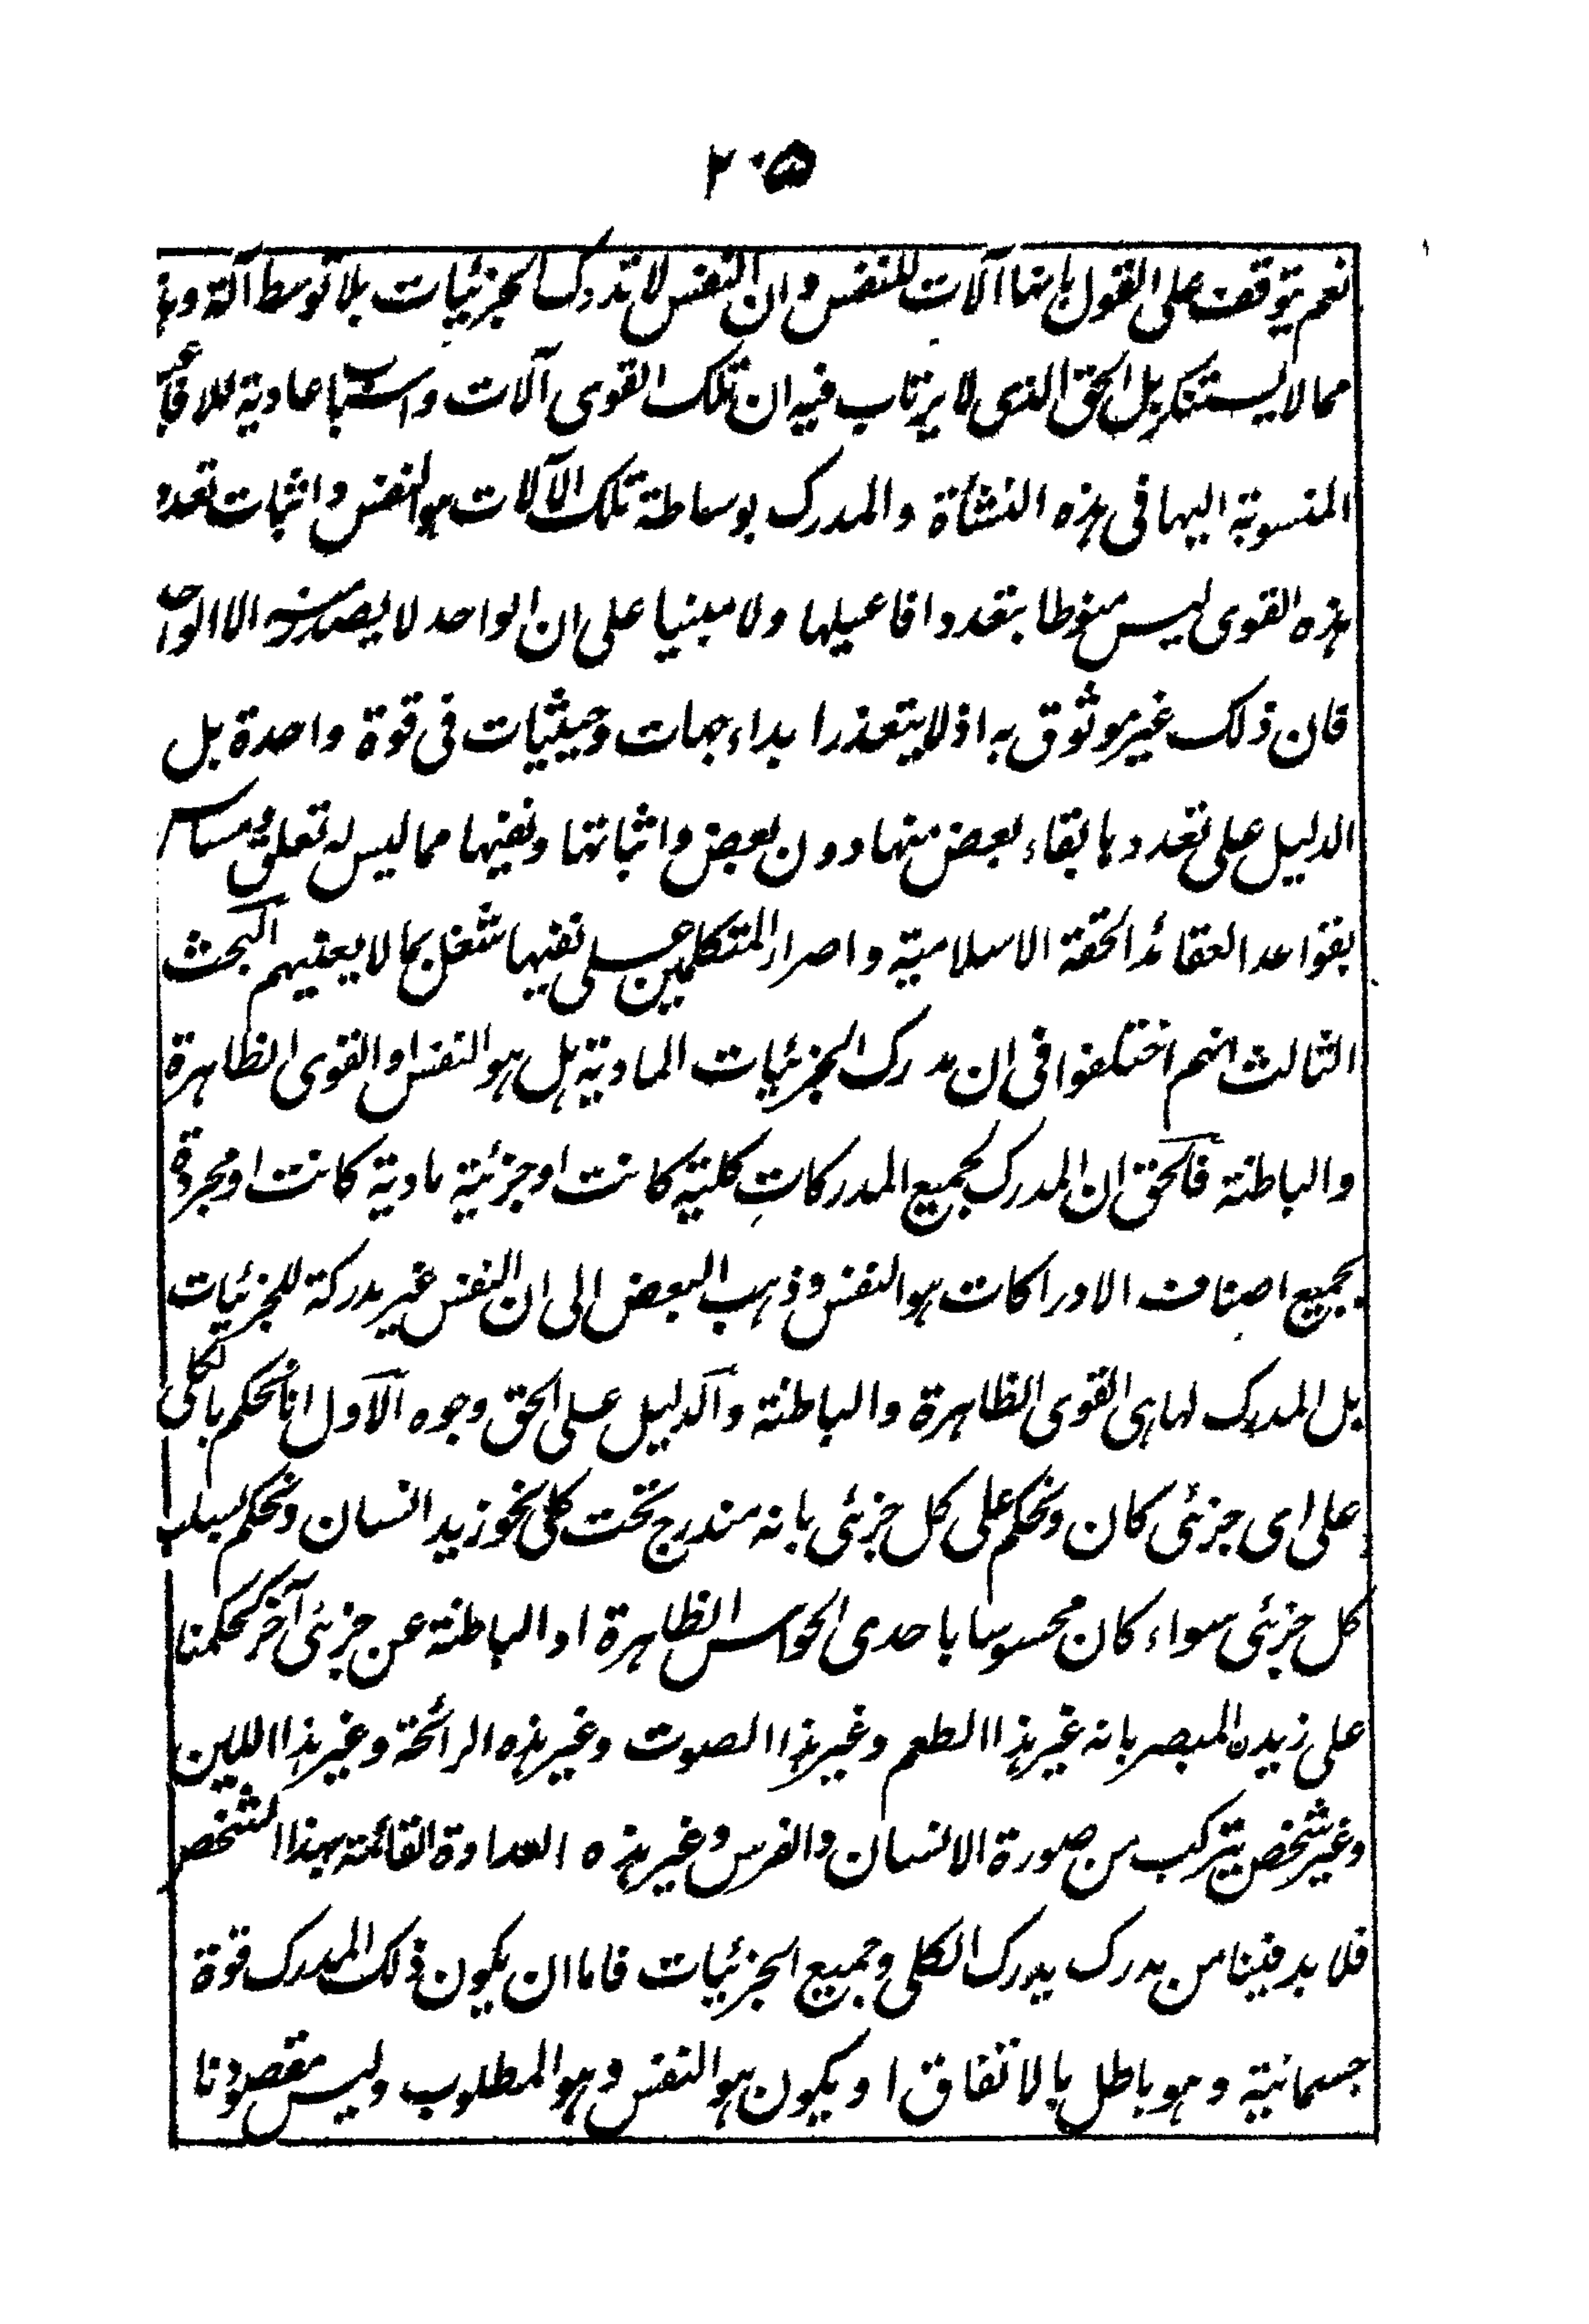 ٢٠۵
نعم يتوقف على القول بانها آلات للنفس وان النفس لا تدرك الجزئيات بلا توسط آلة وهذا
مما لا يستنكر بل الحق الذى لا يرتاب فيه ان تلك القوى آلات واسباب عادية للافاعيل
المنسوبة اليها فى هذه النشأة والمدرك بوساطة تلك الآلات هو النفس واثبات تعدد
هذه القوى ليس منوطا بتعدد افاعيلها ولا مبنيا على ان الواحد لا يصدر منه الا الواحد
فان ذلك غير موثوق به اذ لا يتعذر ابداء جهات وحيثيات فى قوة واحدة بل
الدليل على تعددها بقاء بعض منها دون بعض واثباتها ونفيها مما ليس له تعلق مساس
بقواعد العقائد الحقة الاسلامية واصرار المتكلمين على نفيها شغل بما لا يعنيهم البحث
الثالث انهم اختلفوا فى ان مدرك الجزئيات المادية هل هو النفس او القوى الظاهرة
والباطنة فالحق ان المدرك لجميع المدركات كلية كانت او جزئية مادية كانت او مجردة
بجميع اصناف الادراكات هو النفس وذهب البعض الى ان النفس غير مدركة للجزئيات
بل المدرك لها هى القوى الظاهرة والباطنة والدليل على الحق وجوه الاول انا نحكم بالكلى
على اى جزئى كان ونحكم على كل جزئى بانه مندرج تحت كلى نحو زيد انسان ونحكم بسلب
كل جزئى سواء كان محسوسا باحدى الحواس الظاهرة او الباطنة عن جزئى آخر كحكمنا
على زيدن المبصر بانه غير هذا الطعم وغير هذا الصوت وغير هذه الرائحة وغير هذا اللين
وغير شخص يتركب من صورة الانسان والفرس وغير هذه العداوة القائمة بهذا الشخص
فلا بد فينا من مدرك يدرك الكلى وجميع الجزئيات فاما ان يكون ذلك المدرك قوة
جسمانية وهو باطل بالاتفاق او يكون هو النفس وهو المطلوب وليس مقصودنا